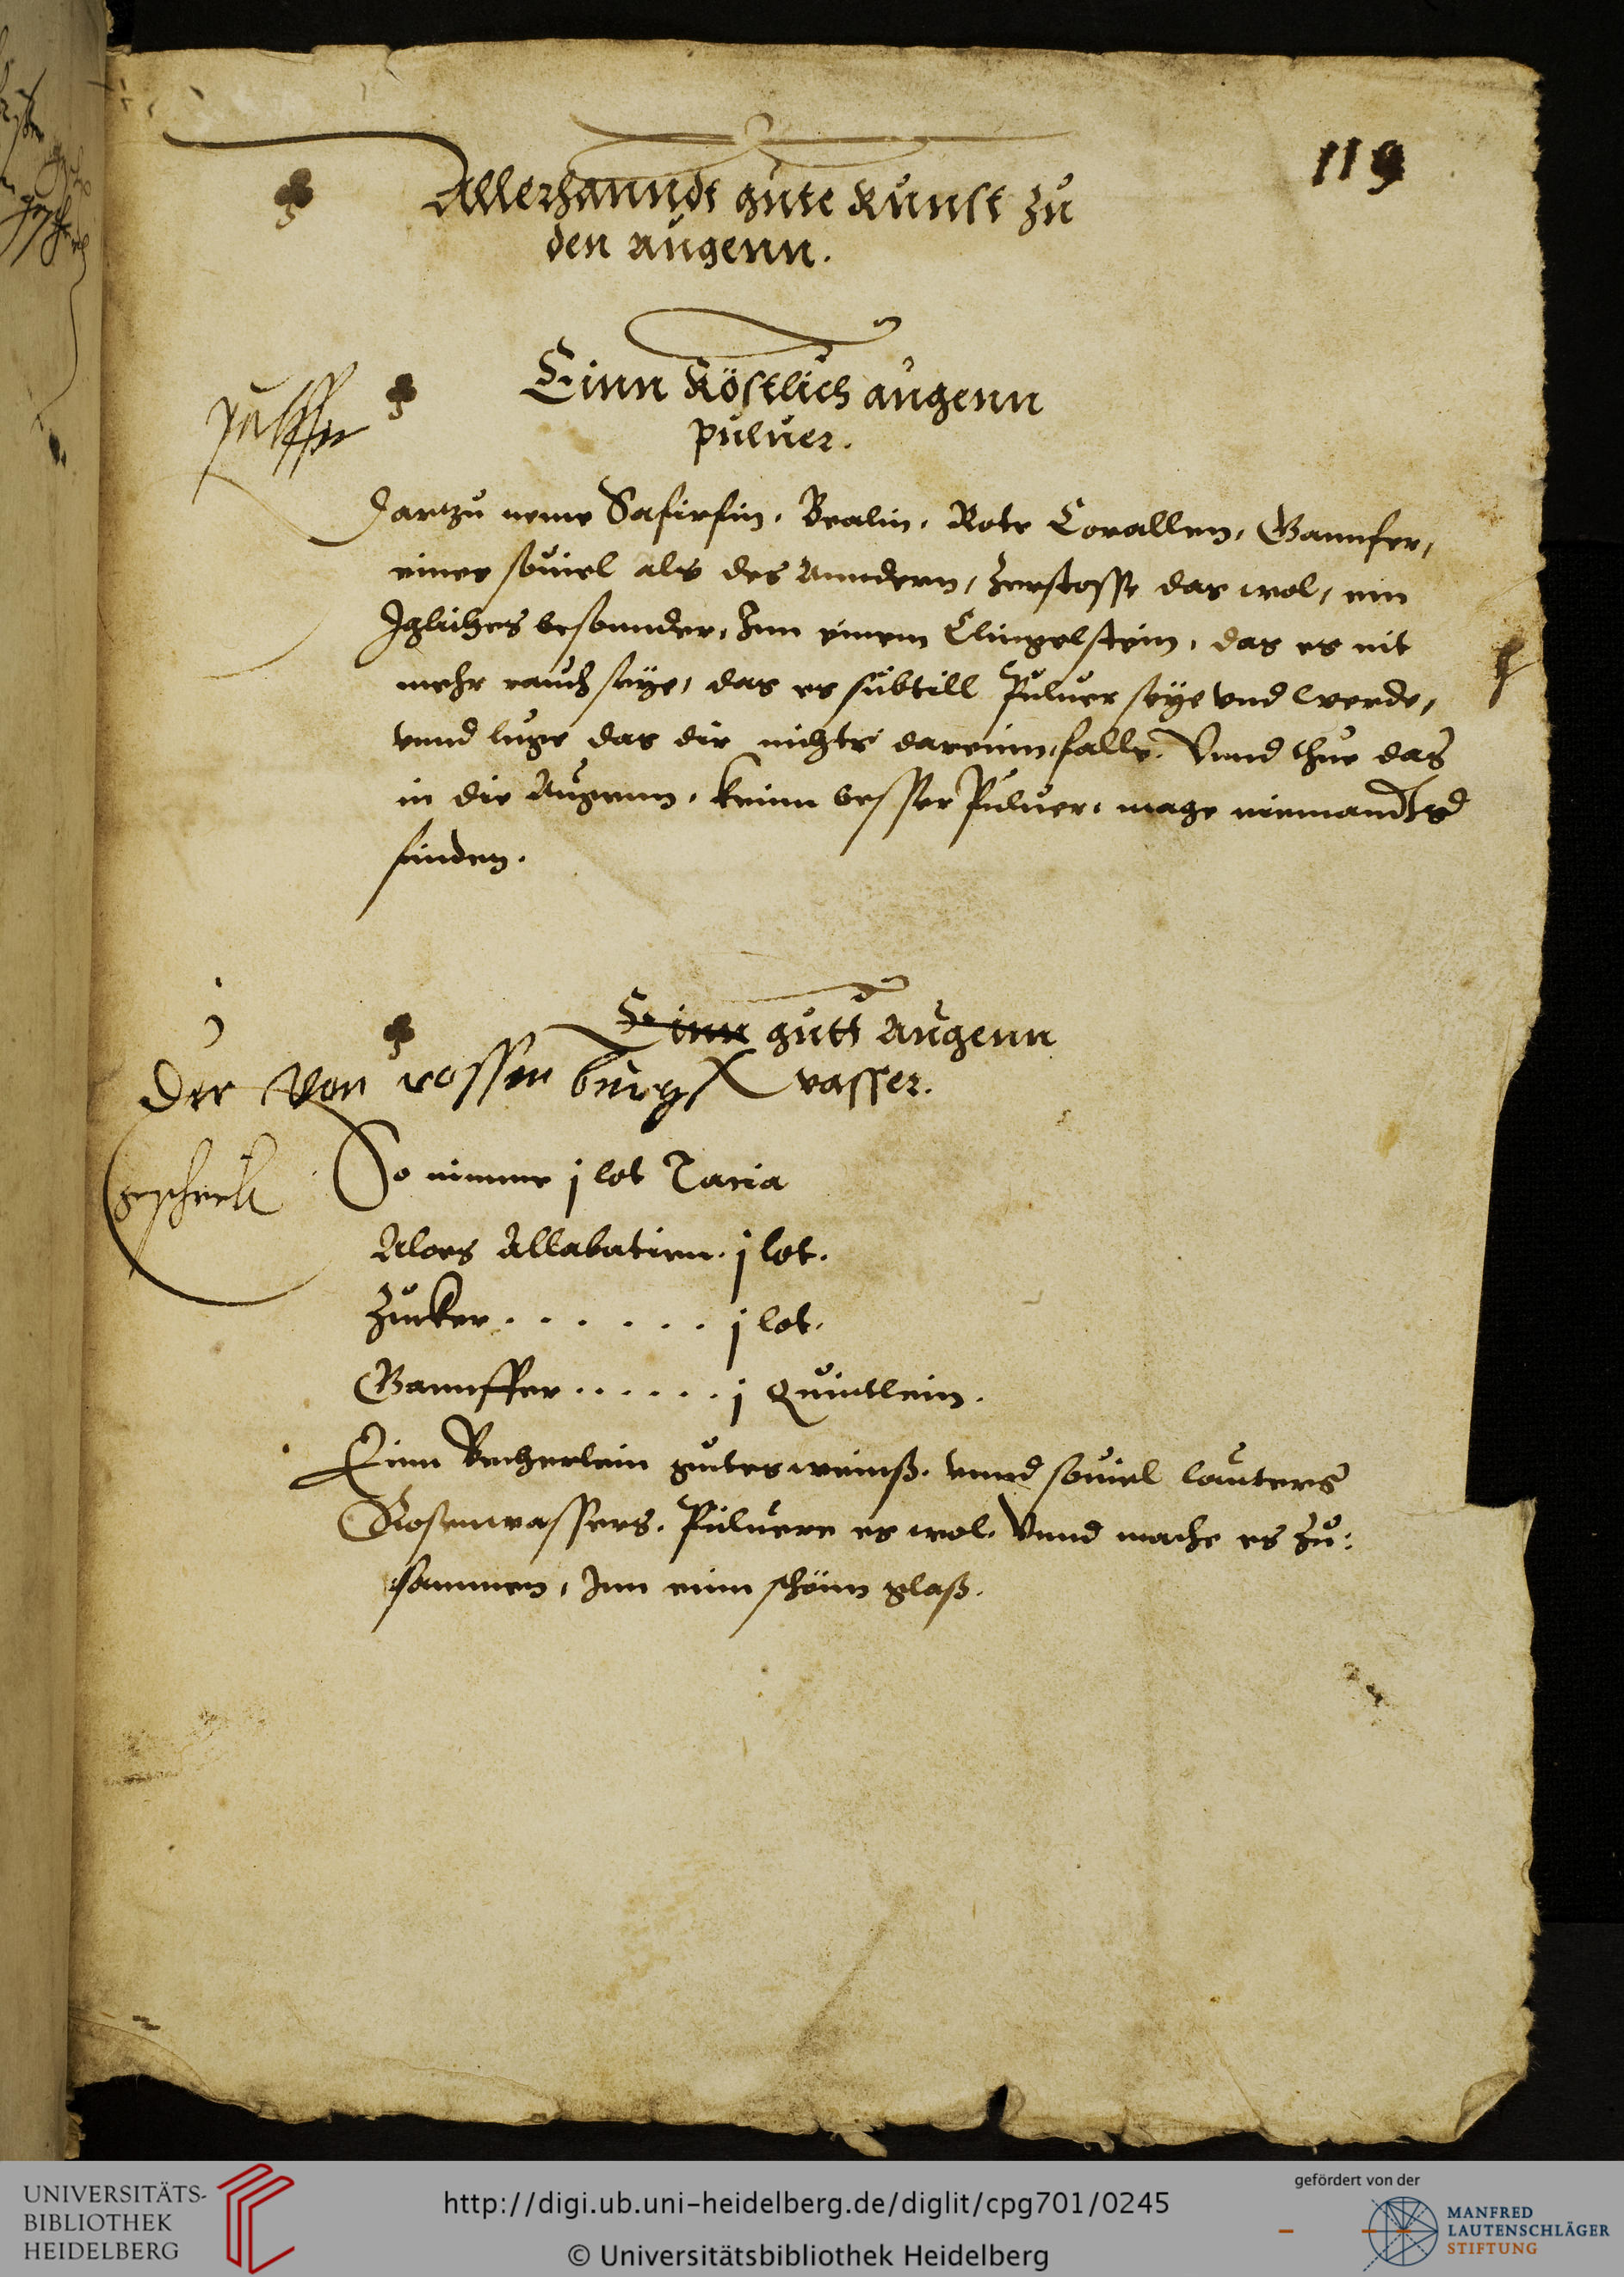 119
Allerhanndt gute kunst zu
den augenn.
Einn köstlich augenn
puluer.
pulffer
Dartzu neme Safirsin, Bealin, Rote Corallen, Gannfer,
eines souiel als des Anndern, Zerstosse das wol, ein
Jgliches besonnder, Jnn einem Clingelstein, das es nit
mehr rauch seye, das es subtill Puluer seye vnd werde,
vnnd luge das dir nichts dareinn falle. Vnnd thue das
in die Augenn, keinn besser Puluer, mage niemandts
finden.
Einn gutt augenn
der von rossen burg wasser.
geschrelt
So nimme j lot Tacia
Aloes Allabatien. j lot.
Zucker . . . . . . j lot.
Gannffer . . . . . . j Quintlein.
Einn Becherlein gutes weinß. vnnd souiel lauters
Rosenwassers. Puluere es wol. Vnnd mache es zu:
sammen, Jnn einn schönn glaß.
UNIVERSITÄTS-
BIBLIOTHEK
HEIDELBERG
http://digi.ub.uni-heidelberg.de/diglit/cpg701/0245
© Universitätsbibliothek Heidelberg
gefördert von der
MANFRED
LAUTENSCHLÄGER
STIFTUNG